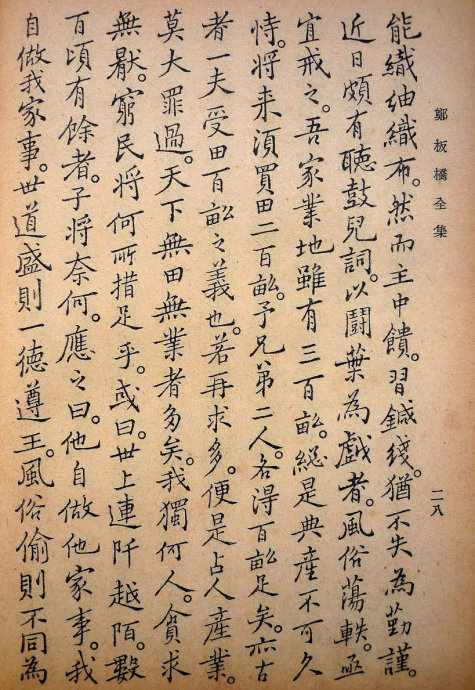 鄭板橋全集
二八
能織紬織布。然而主中饋。習鍼綫。猶不失為勤謹。
近日頗有聽鼓兒詞。以鬪葉為戲者。風俗蕩軼。亟
宜戒之。吾家業地雖有三百畝。總是典產不可久
恃。將来須買田二百畝。予兄弟二人。各得百畝足矣。亦古
者一夫受田百畝之義也。若再求多。便是占人產業。
莫大罪過。天下無田無業者多矣。我獨何人。貪求
無厭。窮民將何所措足乎。或曰世上連阡越陌。數
百頃有餘者。子將奈何。應之曰。他自做他家事。我
自做我家事。世道盛則一德遵王。風俗偷則不同為